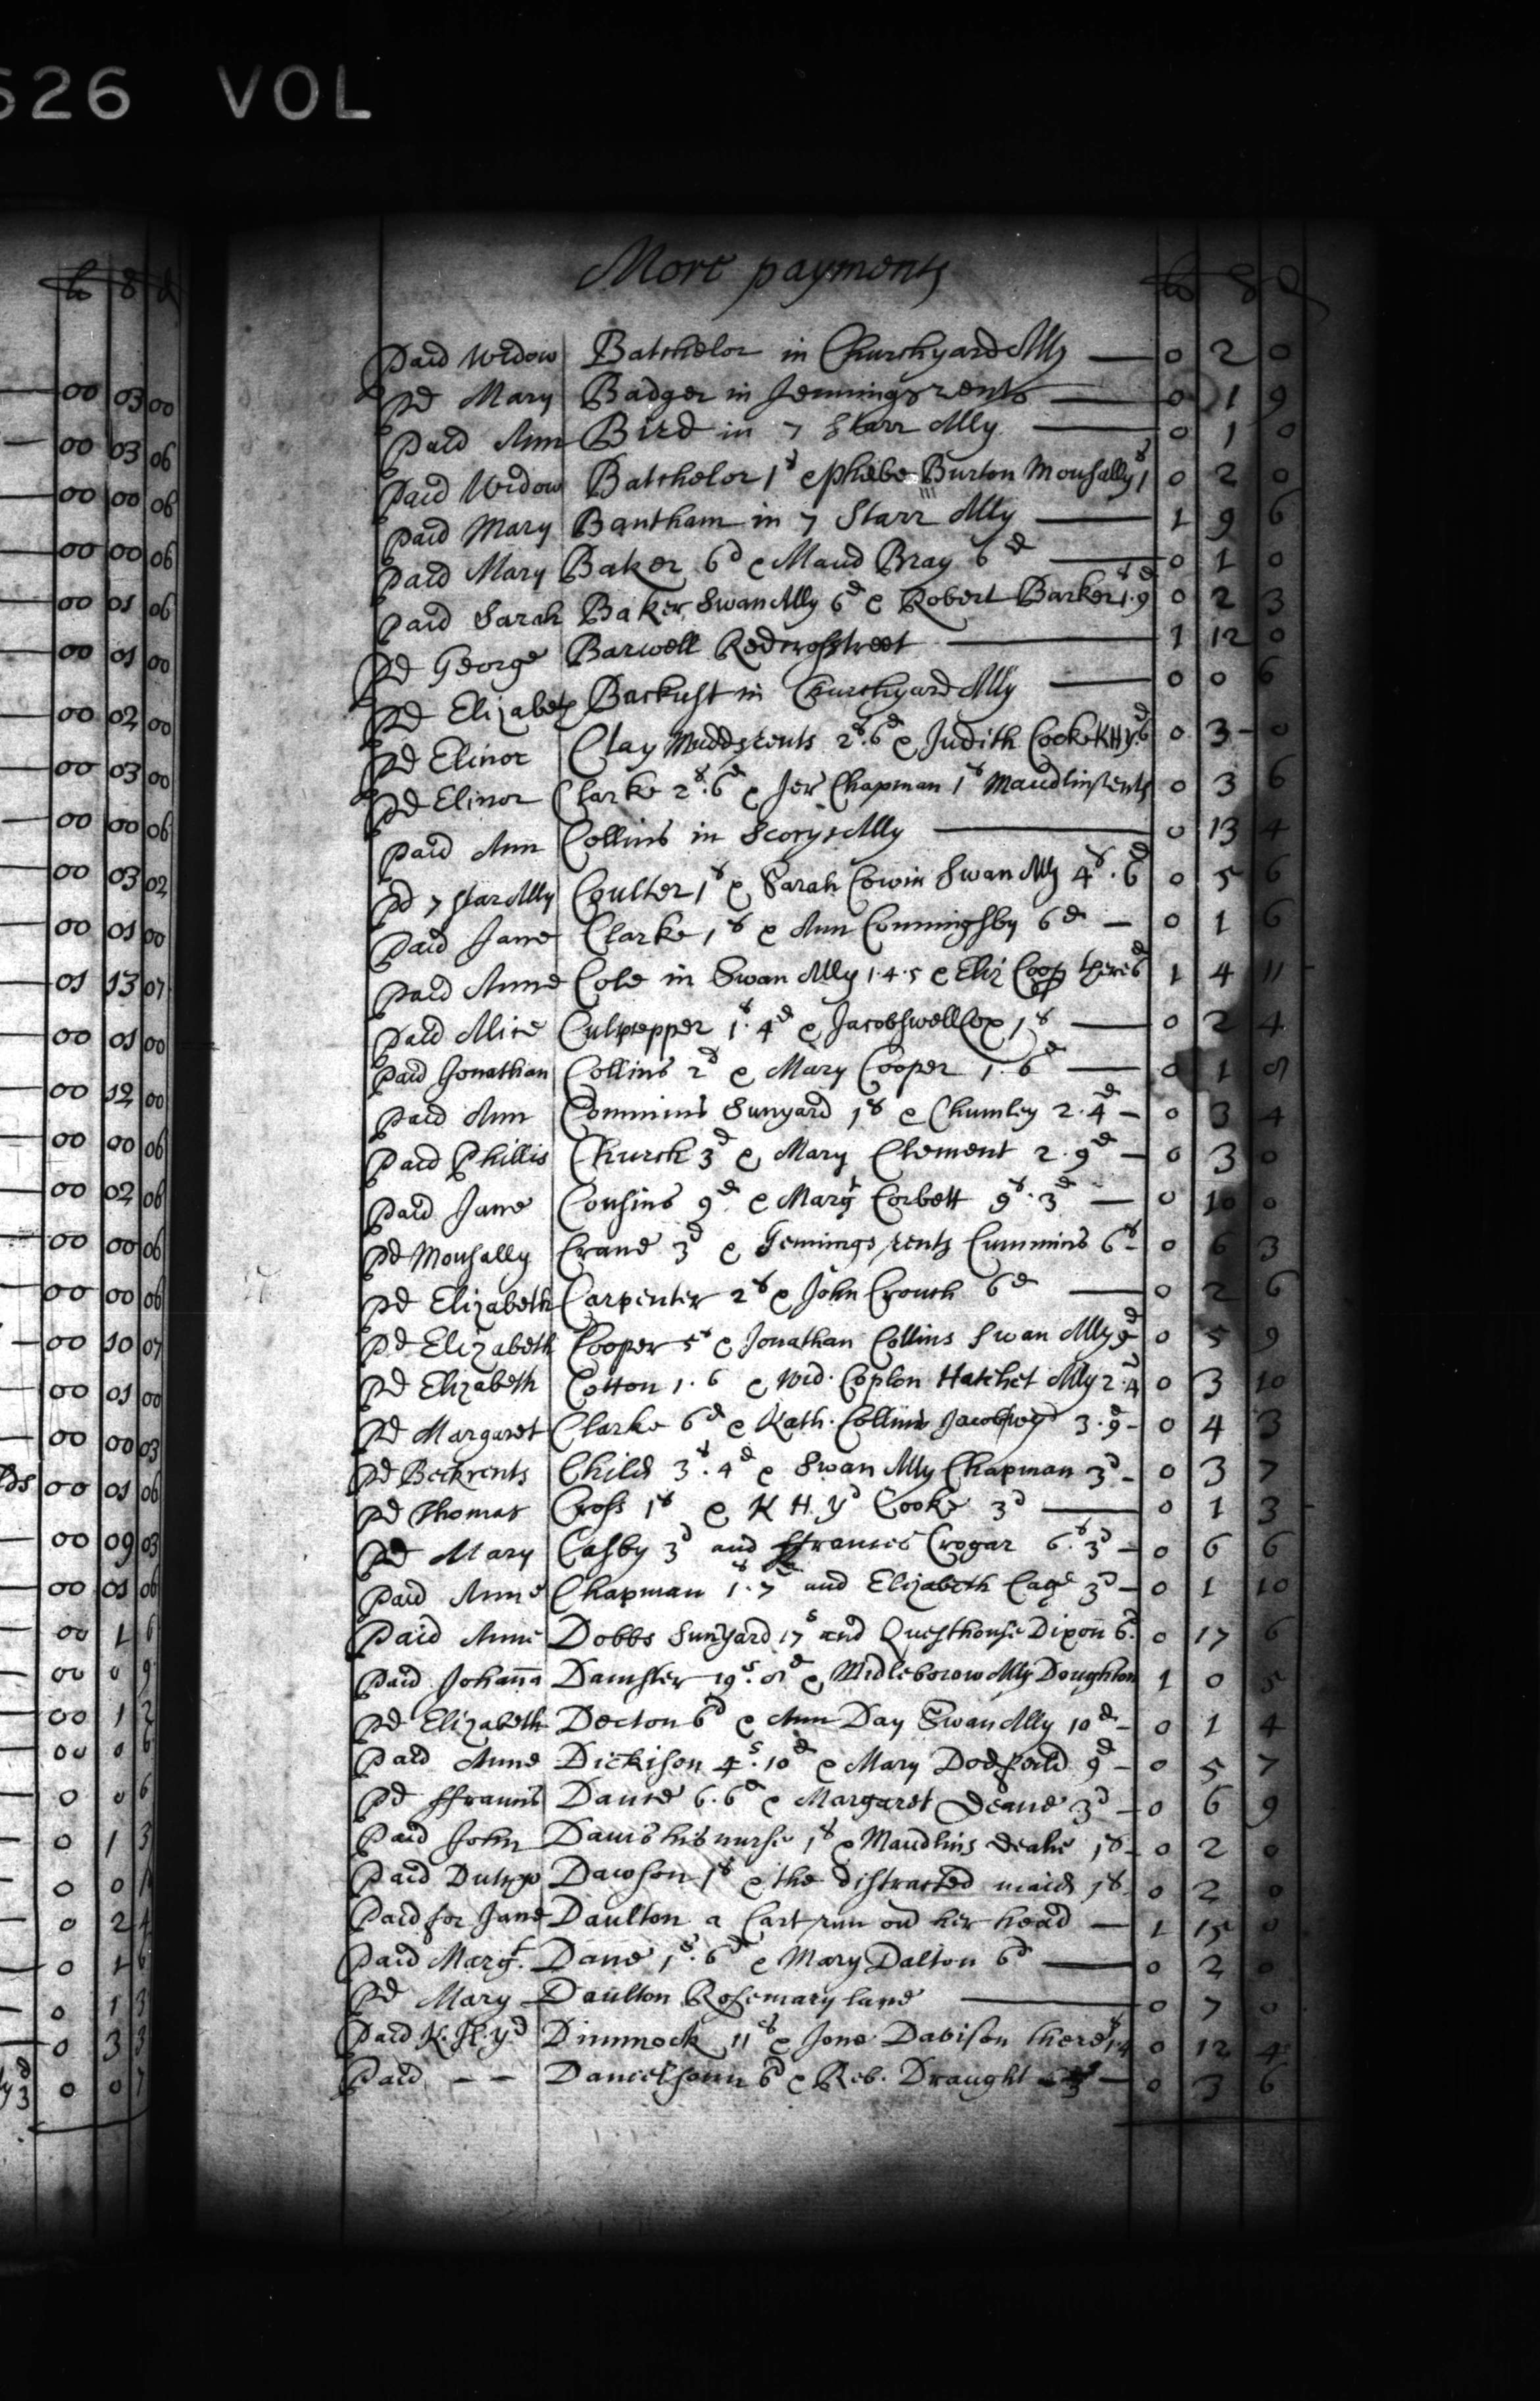 626 VOL
More payments
lb s d
Paid Widow Batchelor in Churchyard Ally — 0 2 0
Pd Mary Badger in Jennings rents — 0 1 9
Paid Ann Bird in 7 Starr Ally — 0 1 0
Paid Widow Batchelor 1s & Phebe Burton Mousally 1s 0 2 0
Paid Mary Bantham in 7 Starr Ally — 1 9 6
Paid Mary Baker 6d & Maud Bray 6d — 0 1 0
Paid Sarah Baker Swan Ally 6d & Robert Barker 1s.9d 0 2 3
Pd George Barwell Redcrosstreet — 1 12 0
Pd Elizabeth Backust in Churchyard Ally — 0 0 6
Pd Elinor Clay Mudds rents 2s.6d & Judith Cooke KHyd 6d 0 3 - 0
Pd Elinor Clarke 2s.6d & Jer Chapman 1s Maudlins rents 0 3 6
Paid Ann Collins in Scorys Ally — 0 13 4
Pd 7 star Ally Coulter 1s & Sarah Cowin Swan Ally 4s.6d 0 5 6
Paid Jane Clarke 1s & Ann Conningsby 6d — 0 1 6
Paid Anne Cole in Swan Ally 1.4.5 & Eliz Coop there 6d 1 4 11
Paid Alice Culpepper 1s.4d & Jacobswell Cox 1s — 0 2 4
Paid Jonathan Collins 2d & Mary Cooper 1.6d — 0 1 8
Paid Ann Commins Sunyard 1s & Chumley 2.4d — 0 3 4
Paid Phillis Church 3d & Mary Clement 2.9d — 0 3 0
Paid Jane Cousins 9d & Mary Corbett 9s.3d — 0 10 0
Pd Mousally Crane 3d & Jennings rents Cummins 6s - 0 6 3
Pd Elizabeth Carpenter 2s & John Crouch 6d — 0 2 6
Pd Elizabeth Cooper 5s & Jonathan Collins Swan Ally 9d 0 5 9
Pd Elizabeth Cotton 1.6 & Wid. Coplen Hatchet Ally 2.4 0 3 10
Pd Margaret Clarke 6d & Kath. Collins 3.9d - 0 4 3
Pd Beckrents Child 3s.4d & Swan Ally Chapman 3d - 0 3 7
Pd Thomas Cross 1s & K H yd Cooke 3d — 0 1 3
Pd Mary Casby 3d and ffrances Crogar 6s.3d - 0 6 6
Paid Anne Chapman 1s.7d and Elizabeth Cage 3d - 0 1 10
Paid Anne Dobbs Sunyard 17s and Questhouse Dixon 6d. 0 17 6
Paid Johanna Damster 19s.8d & Midleborow Ally Doughton 1 0 5
Pd Elizabeth Decton 6d & Ann Day Swan Ally 10d - 0 1 4
Paid Anne Dickison 4s.10d & Mary Dodfeild 9d - 0 5 7
Pd ffrancis Dance 6.6d & Margaret Deane 3d - 0 6 9
Paid John Davis his nurse 1s & Maudlins Deake 1s - 0 2 0
Paid Dawson 1s & the distracted maid 1s. 0 2 0
Paid for Jane Daulton a Cart run on her head — 1 15 0
Paid Margt. Dane 1s.6d & Mary Dalton 6d — 0 2 0
Pd Mary Daulton Rosemary lane — 0 7 0
Paid K.H.yd Dimmock 11s & Jone Davison there 0 12 4
Paid — — Danielsonn 6d & Reb. Draught 3s — 0 3 6
lb s d
00 03 00
00 03 06
00 00 06
00 00 06
00 01 06
00 01 00
00 02 00
00 03 00
00 00 06
00 03 02
00 01 00
01 13 07
00 01 00
00 12 00
00 00 06
00 02 06
00 00 06
00 00 06
00 10 07
00 01 00
00 00 03
00 01 06
00 09 03
00 01 06
00 1 6
00 0 9
00 1 2
00 0 6
0 0 6
0 1 3
0 0
0 2 4
0 1 6
0 1 3
0 3 3
0 0 7